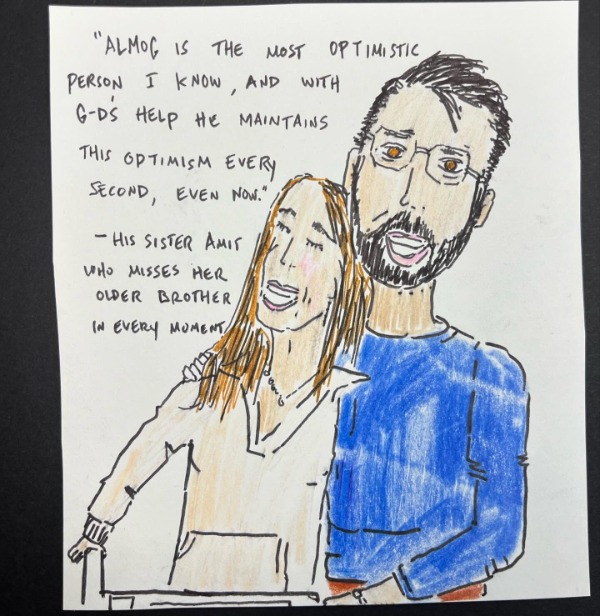 "ALMOG IS THE MOST OPTIMISTIC
PERSON I KNOW, AND WITH
G-D'S HELP HE MAINTAINS
THIS OPTIMISM EVERY
SECOND, EVEN NOW."
- HIS SISTER AMIT
WHO MISSES HER
OLDER BROTHER
IN EVERY MOMENT